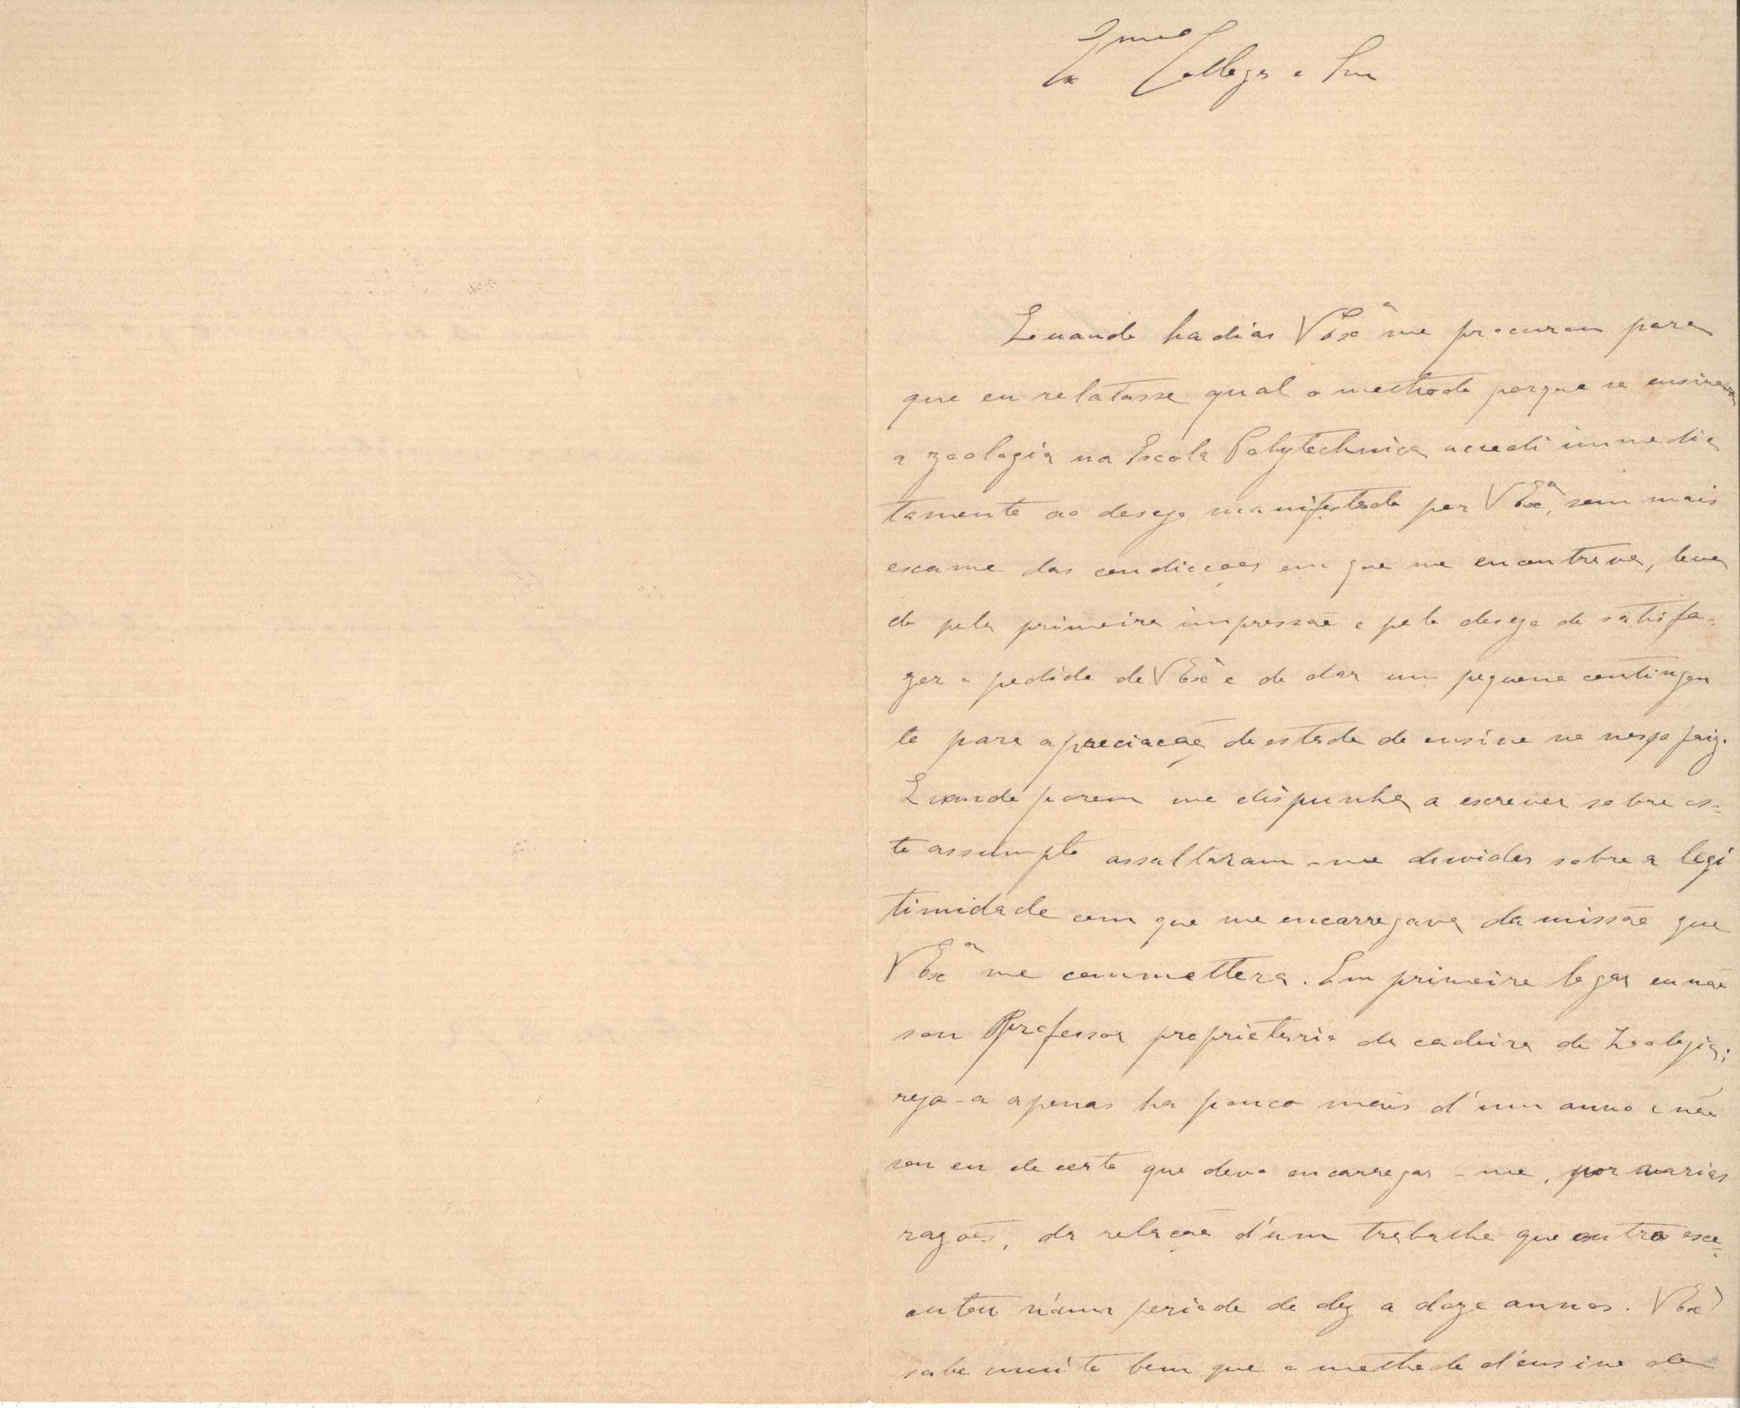 Exmo Collega e Snr
Quando ha dias V Exª me procurou para
que eu relatasse qual o methodo porque se ensinava
a zoologia na Escola Polytechnica accedi immedia
tamente ao desejo manifestado por V Exª, sem mais
exame das condicções em que me encontrava, leva
do pela primeira impressão e pelo desejo de satisfa-
zer o pedido de V Exª e de dar um pequeno contingen
te para apreciação do estado do ensino no nosso paiz.
Quando porem me dispunha a escrever sobre es-
te assumpto assaltaram-me duvidas sobre a legi
timidade com que me encarregava da missão que
V Exª me commettera. Em primeiro logar eu não
sou Professor proprietario da cadeira de Zoologia;
rejo-a apenas ha pouco mais d'um anno e não
sou eu de certo que devo encarregar-me, por varias
razões, da relação d'um trabalho que outro exe-
cutou n'um periodo de dez a doze annos. V Exª
sabe muito bem que o methodo d'ensino de